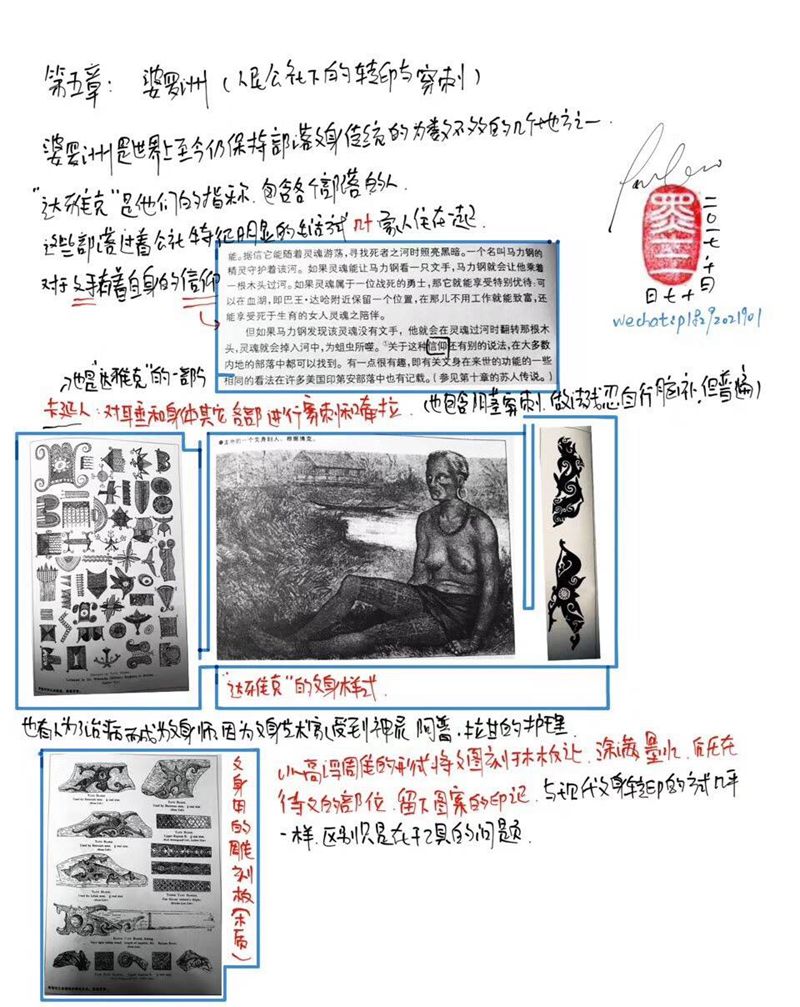 第五章： 婆罗洲（人民公社下的转印与穿刺）
婆罗洲是世界上至今仍保持部落文身传统的为数不多的几个地方之一.
"达雅克"是他们的指称.包含各个部落的人.
这些部落过着公社特征明显的生活方式 几十家人住在一起.
对于文手有着自身的信仰
能。据信它能随着灵魂游荡，寻找死者之河时照亮黑暗。一个名叫马力钢的
精灵守护着该河。如果灵魂能让马力钢看一只文手，马力钢就会让他乘着
一根木头过河。如果灵魂属于一位战死的勇士，那它就能享受特别优待：可
以在血湖，即巴王·达哈附近保留一个位置，在那儿不用工作就能致富，还
能享受死于生育的女人灵魂之陪伴。
但如果马力钢发现该灵魂没有文手，他就会在灵魂过河时翻转那根木
头，灵魂就会掉入河中，为蛆虫所噬。①关于这种信仰还有别的说法，在大多数
内地的部落中都可以找到。有一点很有趣，即有关文身在来世的功能的一些
相同的看法在许多美国印第安部落中也有记载。（参见第十章的苏人传说。）
二〇一七、十月
十七日
也是"达雅克"的一部分
卡延人：对耳垂和身体其它各部进行穿刺和牵拉.
"达雅克"的文身样式.
也有人为了治病而成为文身师.因为文身艺术家受到神灵 阿普·拉甘的护理
以高浮雕的形式将文图刻于木板上，涂满墨水，后压在
待文的部位.留下图案的印记.与现代文身转印的方式几乎
一样.区别只是在于工具的问题.
文身用的雕刻板（木质）